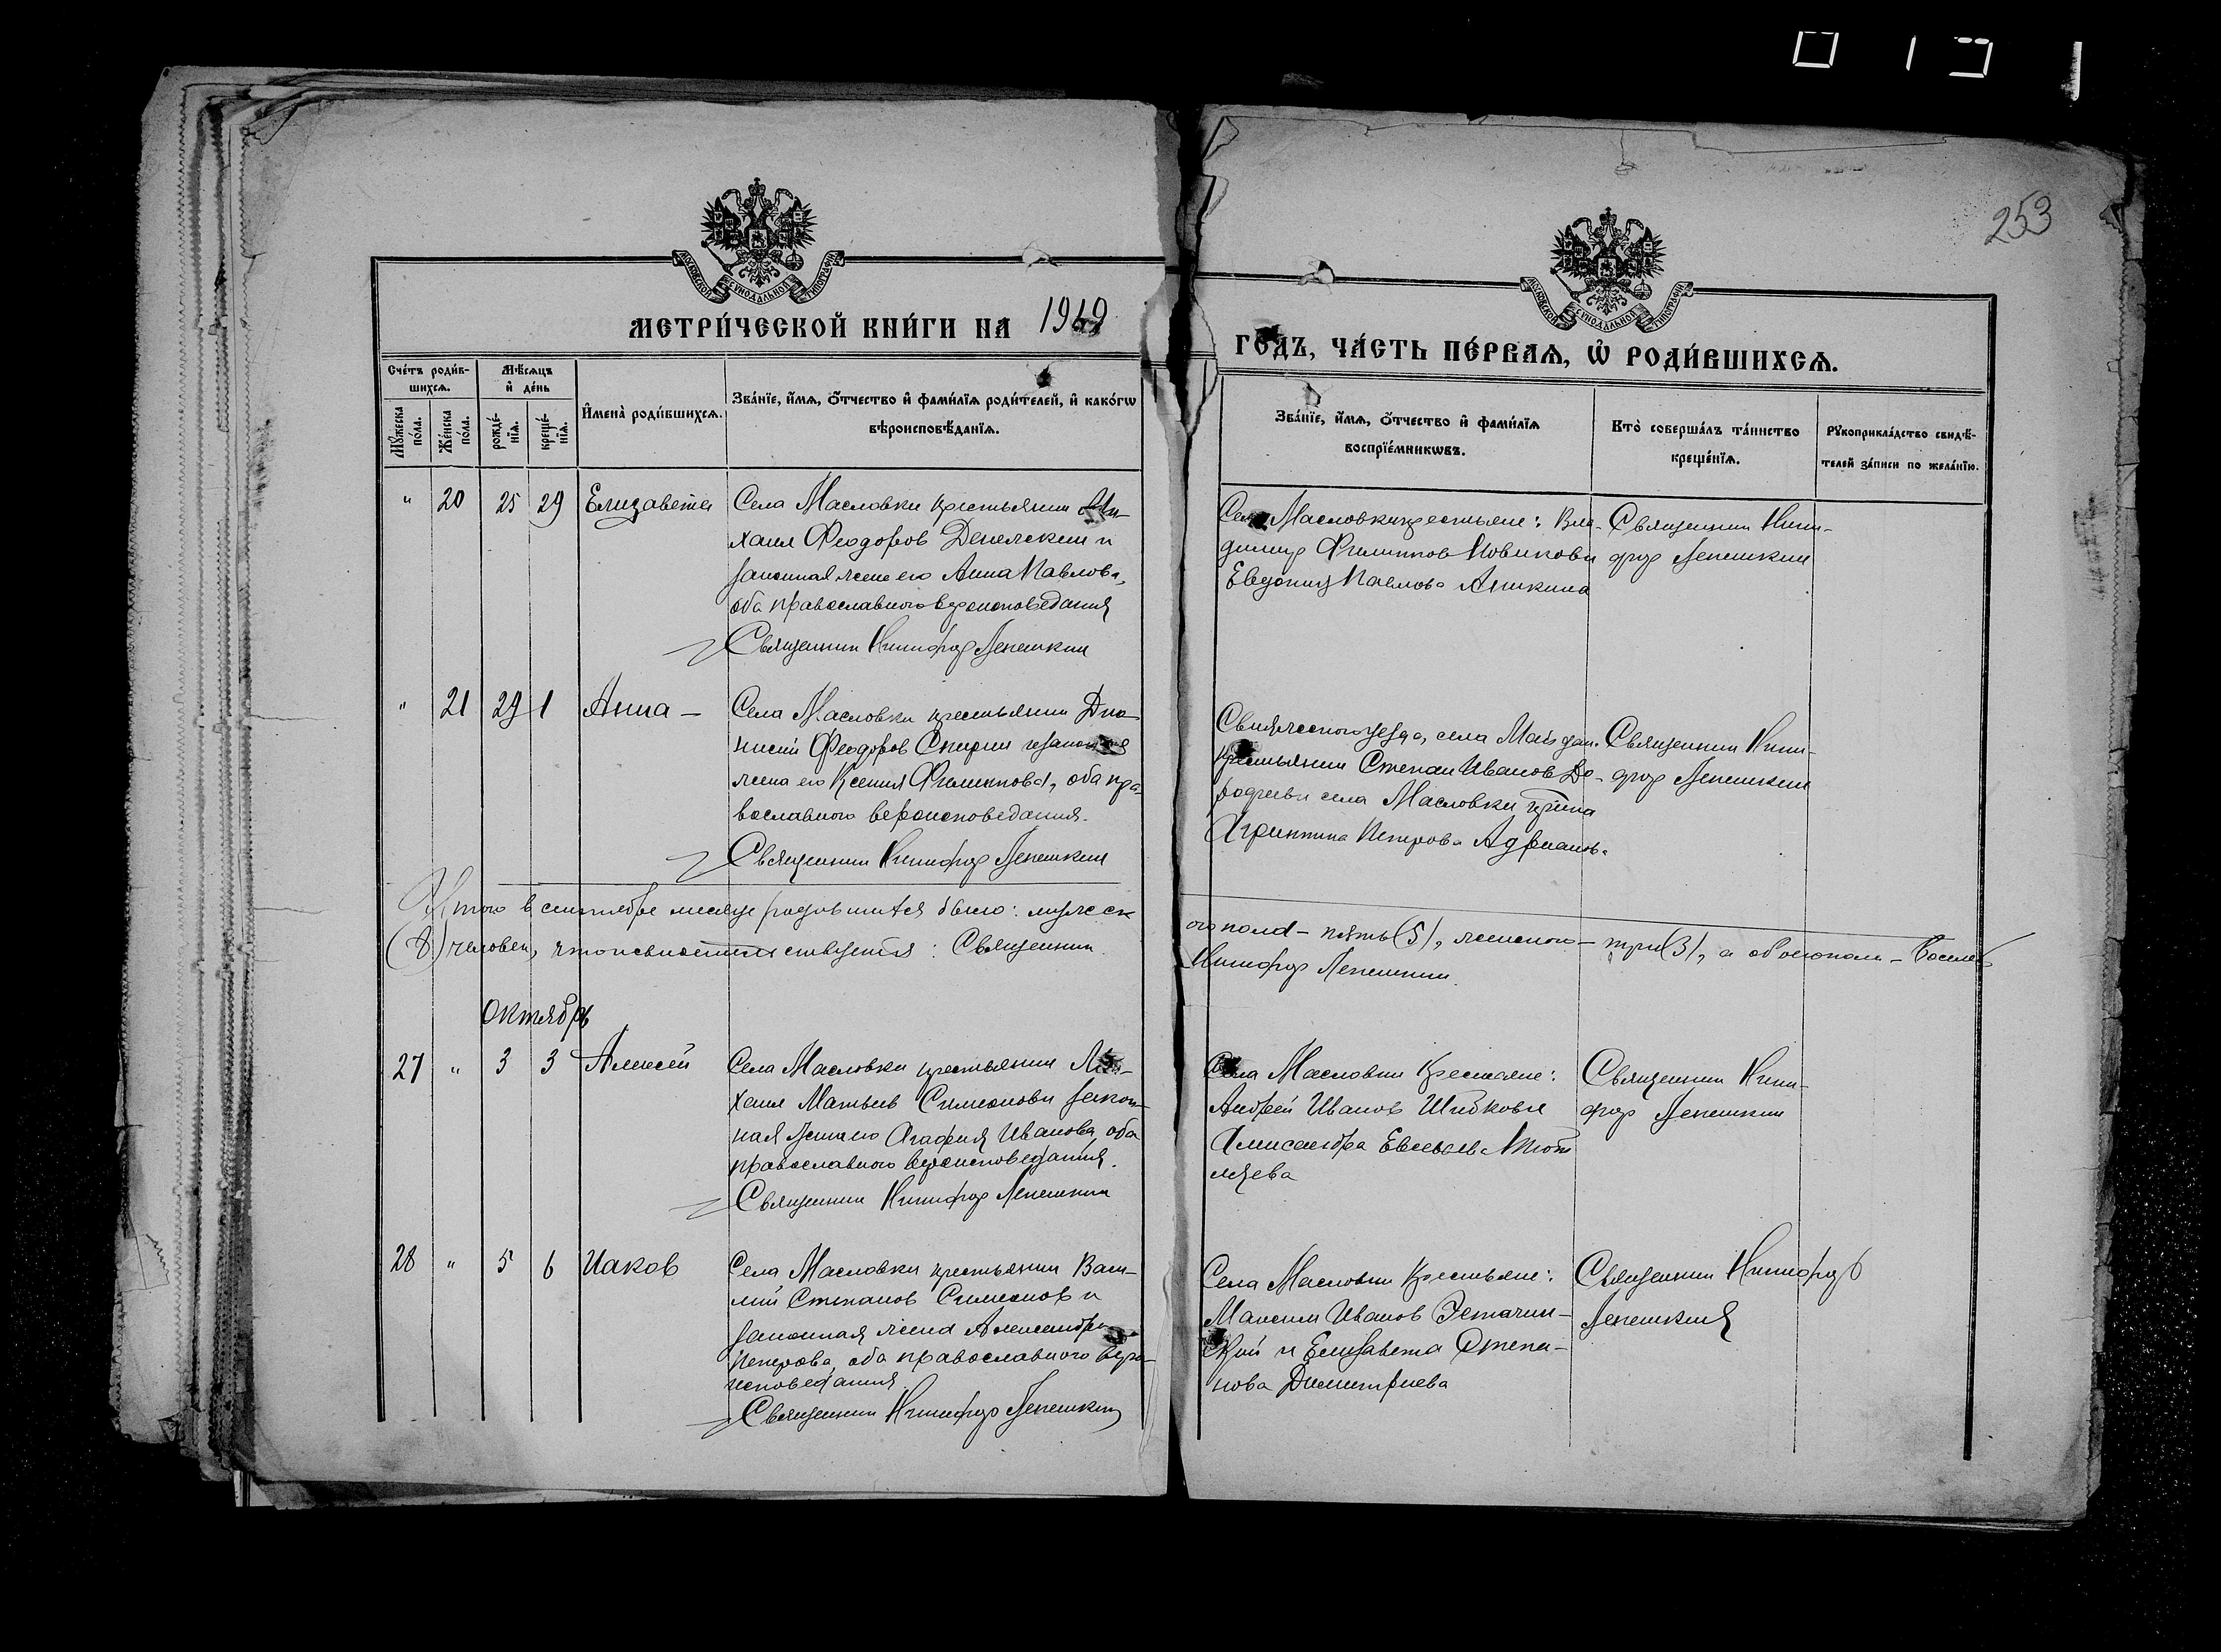 253
МОСКОВСКОЙ СѴНОДАЛЬНОЙ ТИПОГРАФІИ
МОСКОВСКОЙ СѴНОДАЛЬНОЙ ТИПОГРАФІИ
МЕТРИ́ЧЕСКОЙ КНИ́ГИ НА 1919
ГО́ДЪ, ЧА́СТЬ ПЕ́РВАѦ, Ѡ РОДИ́ВШИХСѦ.
Сче́тъ роди́в-
шихсѧ.
Мѣ́сѧцъ
и҆ де́нь
Мꙋ́жеска
по́ла.
Же́нска
по́ла.
рожде́-
нїѧ.
креще́-
нїѧ.
И҆мена̀ роди́вшихсѧ.
Зва́нїе, и҆́мѧ, ѻ҆́тчество и҆ фами́лїѧ роди́телей, и҆ како́гѡ
вѣроисповѣ́данїѧ.
Зва́нїе, и҆́мѧ, ѻ҆́тчество и҆ фами́лїѧ
воспрїе́мникѡвъ.
Кто̀ соверша́лъ та́инство
креще́нїѧ.
Рꙋкоприкла́дство свидѣ́-
телей за́писи по жела́нїю.
" 20 25 29 Елизавета
Села Масловки крестьянин Ми-
хаил Феодоров Денежкин и
законная жена его Анна Павлова,
оба православного вероисповедания
Священник Никифор Лепешкин
Села Масловки крестьяне: Вла-
димир Филиппов Новиков и
Евдокия Павлова Аникина
Священник Ники-
фор Лепешкин
" 21 29 1 Анна -
Села Масловки крестьянин Дио-
нисий Феодоров Спирин и законная
жена его Ксения Филиппова, оба пра-
вославного вероисповедания.
Священник Никифор Лепешкин
Свияжского уезда, села Майдан
крестьянин Степан Иванов До-
родеев и села Масловки кр-нка
Агриппина Петрова Адриано-
Священник Ники-
фор Лепешкин
Итого в сентябре месяце родившихся было: мужеск
ого пола - пять (5), женского - три (3), а обоего пола - восемь
(8) человек, что и свидетельствуется: Священник
Никифор Лепешкин.
Октябрь
27 " 3 3 Алексей
Села Масловки крестьянин Ми-
хаил Матвеев Симонов и закон-
ная жена его Агафия Иванова, оба
православного вероисповедания.
Священник Никифор Лепешкин
Села Масловки крестьяне:
Андрей Иванов Шибков и
Александра Евсевьева
Священник Ники-
фор Лепешкин
28 " 5 6 Иаков
Села Масловки крестьянин Васи-
лий Степанов Симонов и
законная жена Александра
Петрова, оба православного веро-
исповедания
Священник Никифор Лепешкин
Села Масловки крестьяне:
Максим Иванов
и Елизавета Степа-
нова Димитриева
Священник Никифор
Лепешкин